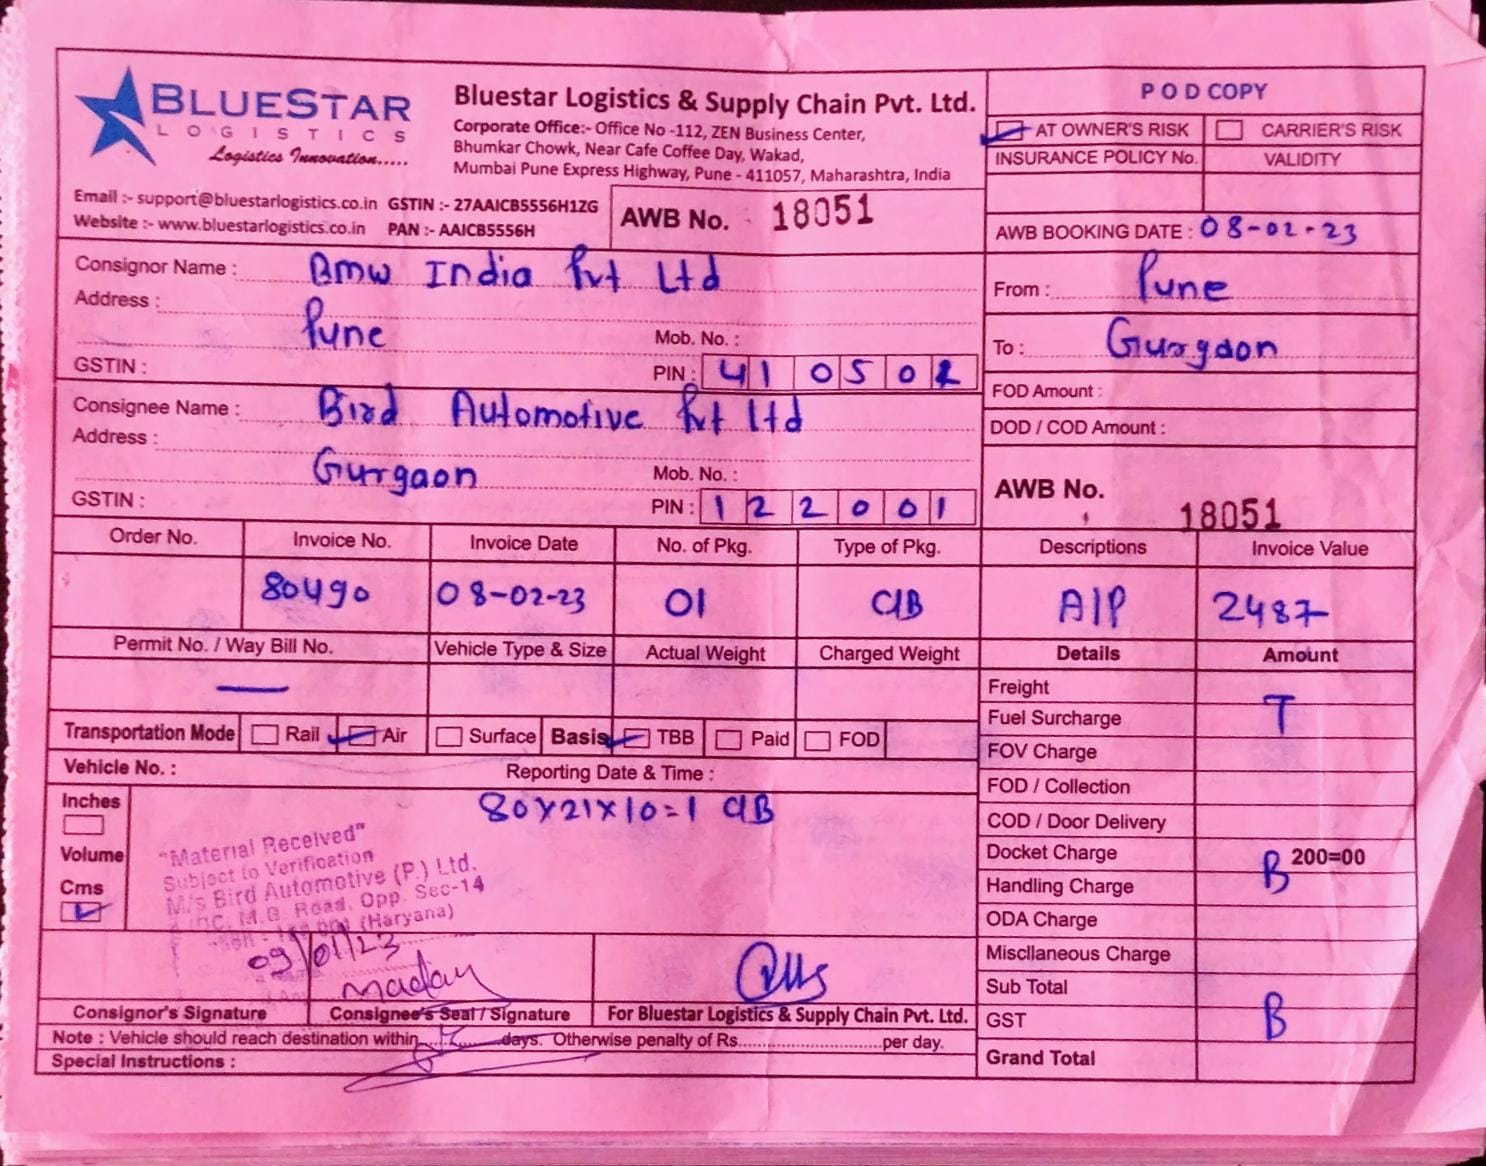 BLUESTAR
LOGISTICS
Logistics Innovation.....
Bluestar Logistics & Supply Chain Pvt. Ltd.
Corporate Office:- Office No -112, ZEN Business Center,
Bhumkar Chowk, Near Cafe Coffee Day, Wakad,
Mumbai Pune Express Highway, Pune - 411057, Maharashtra, India
Email :- support@bluestarlogistics.co.in GSTIN :- 27AAICB5556H1ZG
Website :- www.bluestarlogistics.co.in PAN :- AAICB5556H
AWB No. 18051
POD COPY
AT OWNER'S RISK CARRIER'S RISK
INSURANCE POLICY No. VALIDITY
AWB BOOKING DATE : 08-02-23
Consignor Name : Bmw India Pvt Ltd
Address :
Pune Mob. No. :
GSTIN : PIN : 410502
From : Pune
To : Gurgaon
FOD Amount :
DOD / COD Amount :
Consignee Name : Bird Automotive Pvt Ltd
Address :
Gurgaon Mob. No. :
GSTIN : PIN : 122001
AWB No. 18051
Order No. Invoice No. Invoice Date No. of Pkg. Type of Pkg. Descriptions Invoice Value
80490 08-02-23 01 C/B A/P 2487-
Permit No. / Way Bill No. Vehicle Type & Size Actual Weight Charged Weight Details Amount
—
Transportation Mode Rail Air Surface Basis TBB Paid FOD
Vehicle No. : Reporting Date & Time :
Inches
Volume
Cms
80x21x10=1 C/B
"Material Received"
Subject to Verification
M/s Bird Automotive (P.) Ltd.
M.G. Road, Opp. Sec-14
(Haryana)
09/01/23
Madan
Consignor's Signature Consignee's Seal / Signature For Bluestar Logistics & Supply Chain Pvt. Ltd.
Note : Vehicle should reach destination within days. Otherwise penalty of Rs. per day.
Special Instructions :
Freight
T
Fuel Surcharge
FOV Charge
FOD / Collection
COD / Door Delivery
Docket Charge B 200=00
Handling Charge
ODA Charge
Miscllaneous Charge
Sub Total
GST B
Grand Total